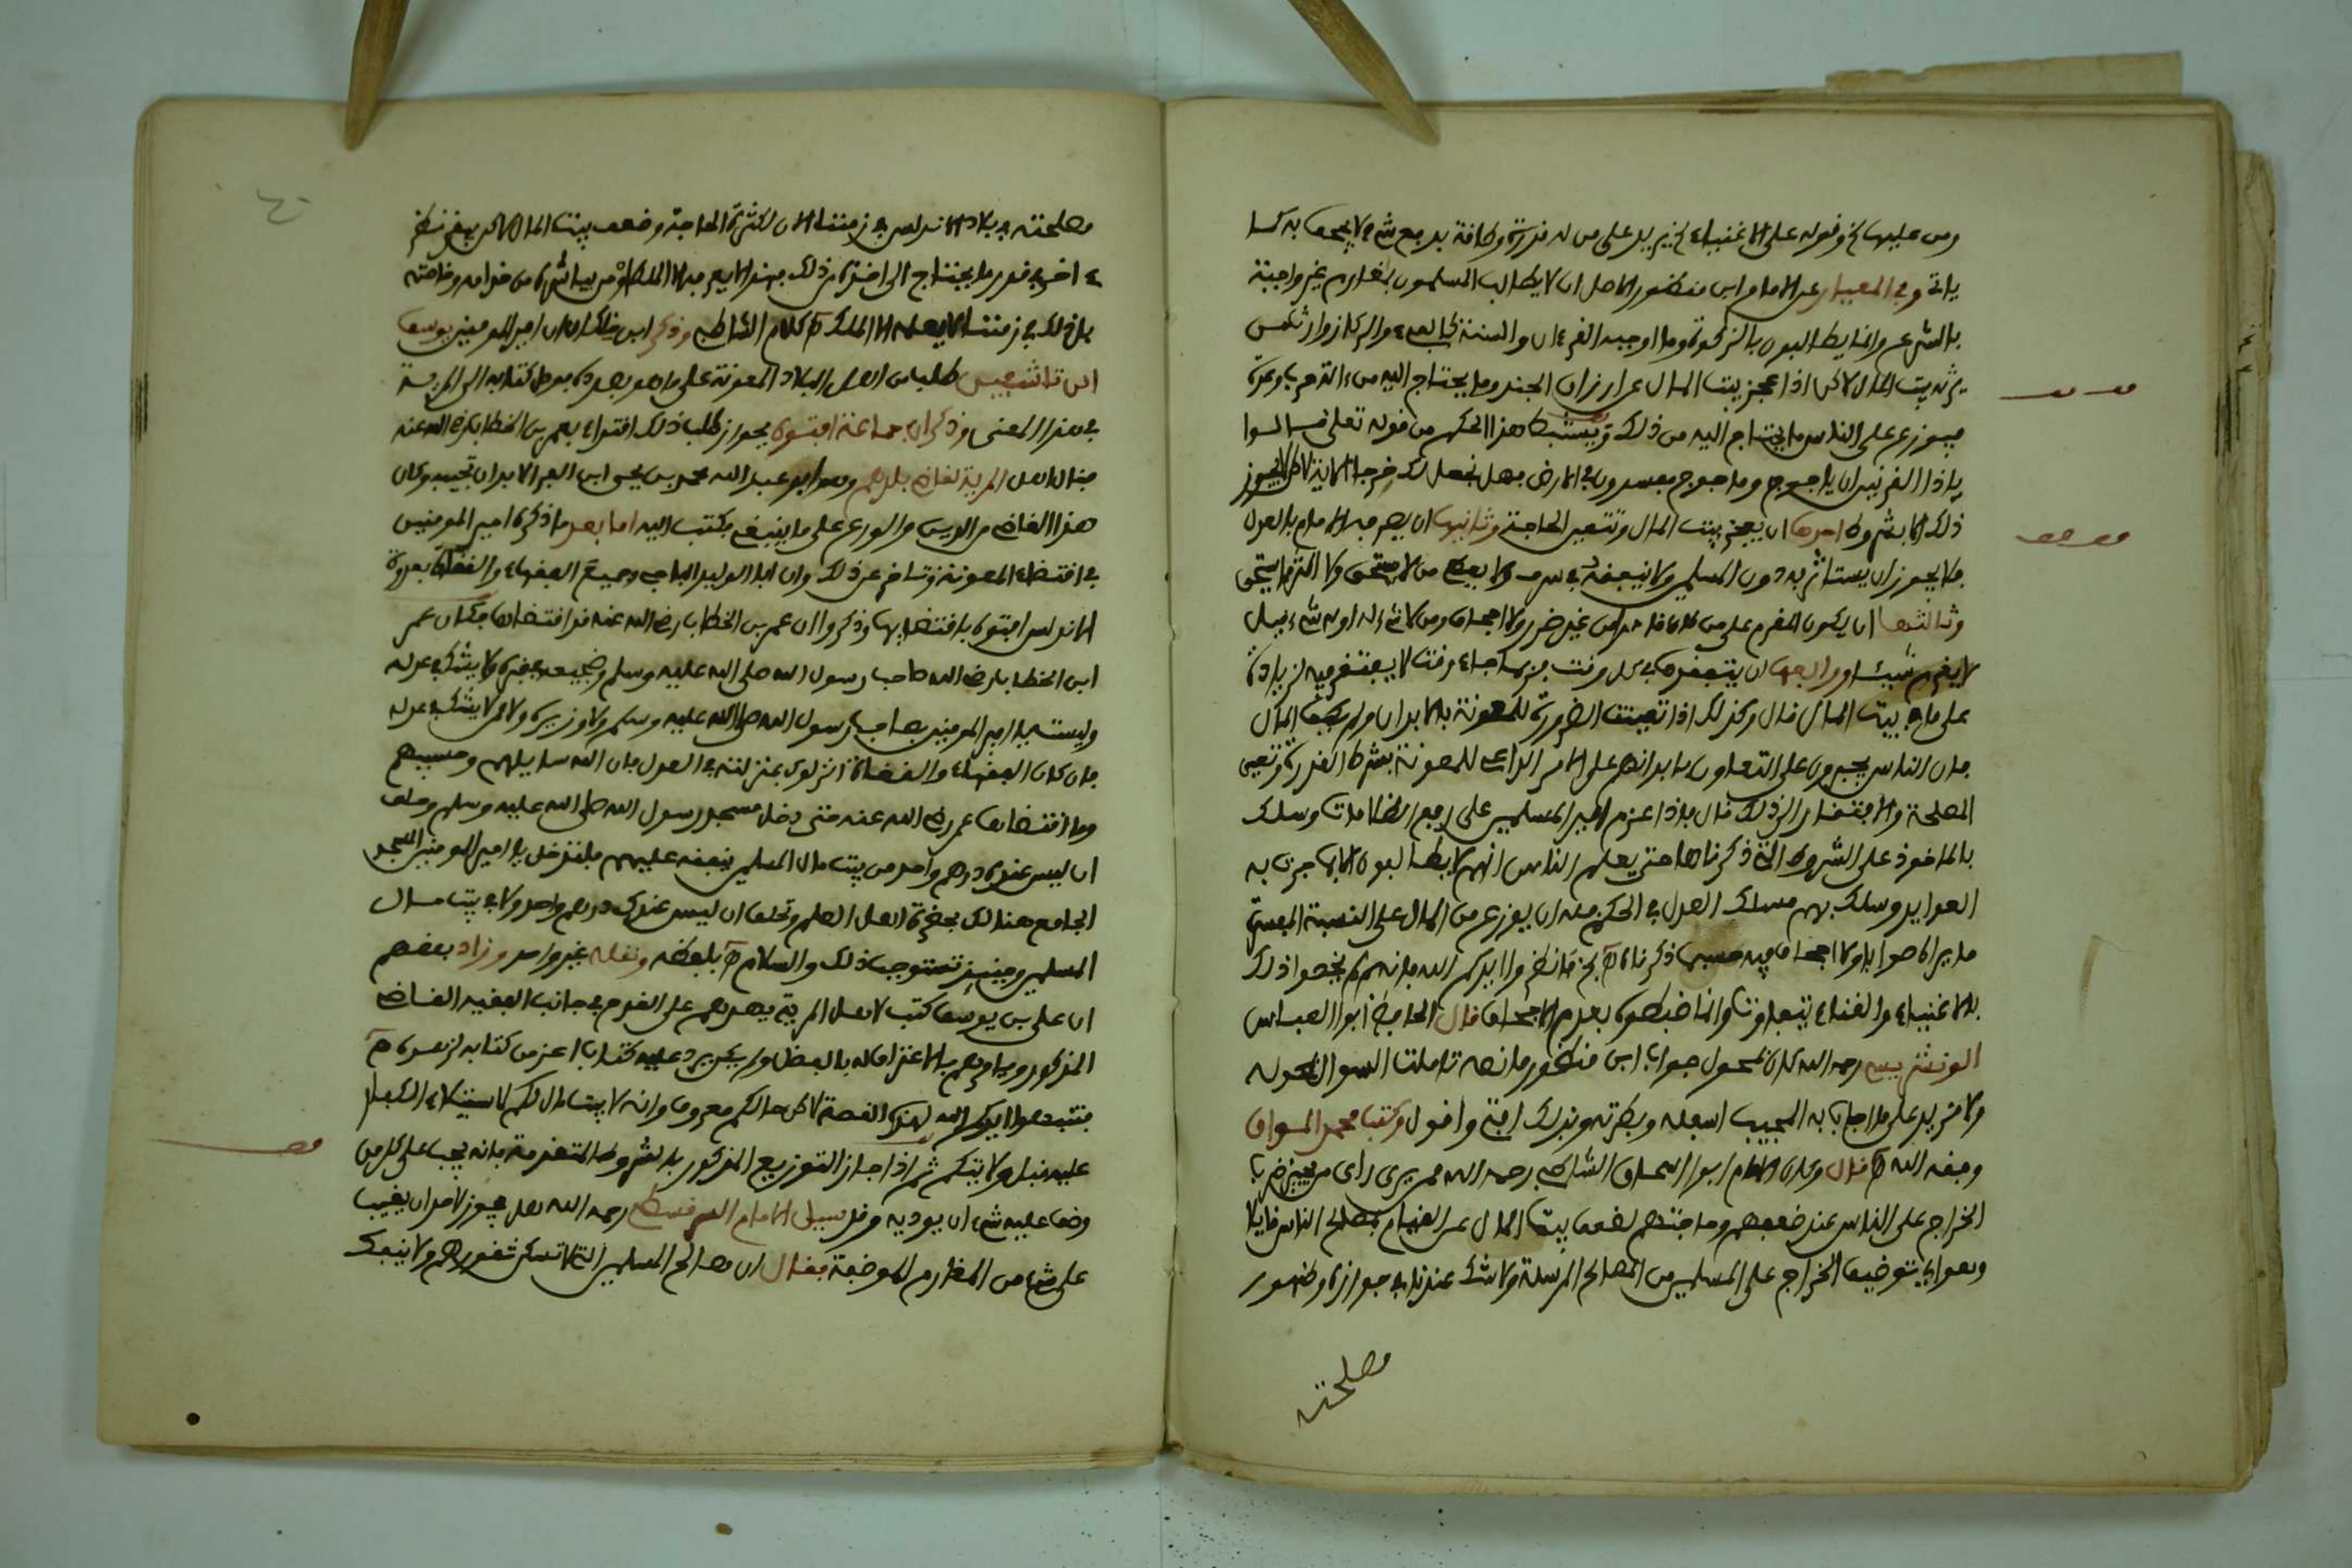 ومن عليها وقوله على الاغنياء يريد على من له قدرة وطاقة بدفع شيء لا يجحف به كما
ياتي وفي المعيار عن الامام ابن منظور الاصل ان لا يطالب المسلمون بمغارم غير واجبة
بالشرع وانما يطالبون بالزكوة وما اوجبه القرءان والسنة كالفيء والركاز وارث من
يرثه بيت المال لاكن اذا عجز بيت المال عن ارزاق الجند وما يحتاج اليه من ءالة حرب وعدة
فيوزع على الناس ما يحتاج اليه من ذلك ويستنبط هذا الحكم من قوله تعلى قالوا
ياذا القرنين ان ياجوج وماجوج مفسدون في الارض فهل نجعل لك خرجا الاية لاكن لا يجوز
ذلك الا بشروط احدها ان يعجز بيت المال وتتعين الحاجة وثانيها ان يصرفه الامام بالعدل
فلا يجوز ان يستاثر به دون المسلمين ولا ينفقه في سرف ولا يعطي من لا يستحق ولا اكثر مما يستحق
وثالثها ان يكون المغرم على من كان قادرا من غير ضرر ولا اجحاف ومن لا شيء له او له شيء قليل
لا يغرم شيئا ورابعها ان يتفقد هذا في كل وقت فربما جاء وقت لا يفتقر فيه لزيادة
على ما في بيت المال قال وكذلك اذا تعينت الضرورة للمعونة بالابدان ولم يكف المال
فان الناس يجبرون على التعاون بابدانهم على الامر الداعي للمعونة بشرط القدرة وتعين
المصلحة والافتقار الى ذلك قال فاذا عزم امير المسلمين على رفع الظلامات وسلك
بالماخوذ على الشروط التي ذكرناها حتى يعلم الناس انهم لا يطالبون الا بما جرت به
العوايد وسلك بهم مسلك العدل في الحكم فله ان يوزع من المال على النسبة المفسرة
ما يراه صوابا ولا اجحاف فيه حسبما ذكرناه فانظروا ايدكم الله فانهم لم يخصوا ذلك
بالاغنياء والغناء يتفاوت وانما ضبطوه بعدم الاجحاف قال الحافظ ابو العباس
الونشريسي رحمه الله كان بمحول جواب ابن منظور ما نصه تاملت السؤال بمحوله
ولا مزيد على ما اجاب به المجيب اسفله وبطرته وبذلك افتي واقول وكتب محمد المواق
وفقه الله قال وكان الامام ابو اسحاق الشاطبي رحمه الله ممن يرى راي من يجيز ضرب
الخراج على الناس عند ضعفهم وحاجتهم لضعف بيت المال عن القيام بمصالح الناس قايلا
وهو اي توظيف الخراج على المسلمين من المصالح المرسلة ولا شك عندنا في جوازه وظهور
مصلحته
٤٠
مصلحته في بلاد الاندلس في زمننا الان لكثرة الحاجة وضعف بيت المال لاكن يبقى النظر
في قدر ما يحتاج الى اخذه من ذلك فهذا لا يعرفه الا الملك او من يباشره من خدامه وخاصته
في زمننا لا يعلمه الا الملك كلام الشاطبي وذكر ابن خلكان ان امير المومنين يوسف
ابن تاشفين طلب من اهل البلاد المعونة على ما هو بصدده فوصل كتابه الى المرية
في هذا المعنى وذكر ان جماعة افتوه بجواز طلب ذلك اقتداء بعمر بن الخطاب رضي الله عنه
فقال اهل المرية لقاضي بلدهم وهو ابو عبد الله محمد بن يحيى ابن البراء ان تجيبه وكان
هذا القاضي من الدين والورع على ما ينبغي فكتب اليه اما بعد ما ذكره امير المومنين
في اقتضاء المعونة وتاخري عن ذلك وان ابا الوليد الباجي وجميع الفقهاء والقضاة بعدوة
الاندلس افتوه باقتضايها وذكروا ان عمر بن الخطاب رضي الله عنه قد اقتضاها فكان عمر
ابن الخطاب رضي الله صاحب رسول الله صلى الله عليه وسلم وضجيعه في قبره ولا يشك في عدله
وليس امير المومنين بصاحب رسول الله صلى الله عليه وسلم ولا وزيره ولا من لا يشك في عدله
فان كان الفقهاء والقضاة انزلوك بمنزلته في العدل فان الله سايلهم وحسيبهم
وما اقتضاها عمر رضي الله عنه حتى دخل مسجد رسول الله صلى الله عليه وسلم وحلف
ان ليس عنده درهم واحد من بيت مال المسلمين ينفقه عليهم فلتدخل يا امير المومنين المسجد
الجامع هنالك بحضرة اهل العلم وتحلف ان ليس عندك درهم واحد ولا في بيت مال
المسلمين وحينئذ تستوجب ذلك والسلام بلفظه ونقله غير واحد وزاد بعضهم
ان علي بن يوسف كتب لاهل المرية يعدهم على القدوم في جانب الفقيه القاضي
المذكور ويامرهم بالاعتراف له بالفضل ولم يكن يرد عليه كتاب اعز من كتابه لزهده
فتثبتوا ايدكم الله لهذه القصة لاكن حالكم معروف وانه لا بيت مال لكم لاستيلاء الكفار
عليه قبل ولا يتكم ثم اذا جاز التوزيع المذكور بالشروط المتقدمة فانه يجب على كل من
وظف عليه شيء ان يوديه وقد سيل الامام السرقسطي رحمه الله هل يجوز لاحد ان يغيب
على شيء من المغارم الموظفة فقال ان مصالح المسلمين التي لا تسكن ثغورهم ولا ينفك